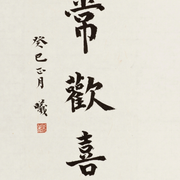 常歡喜
癸巳正月 曦